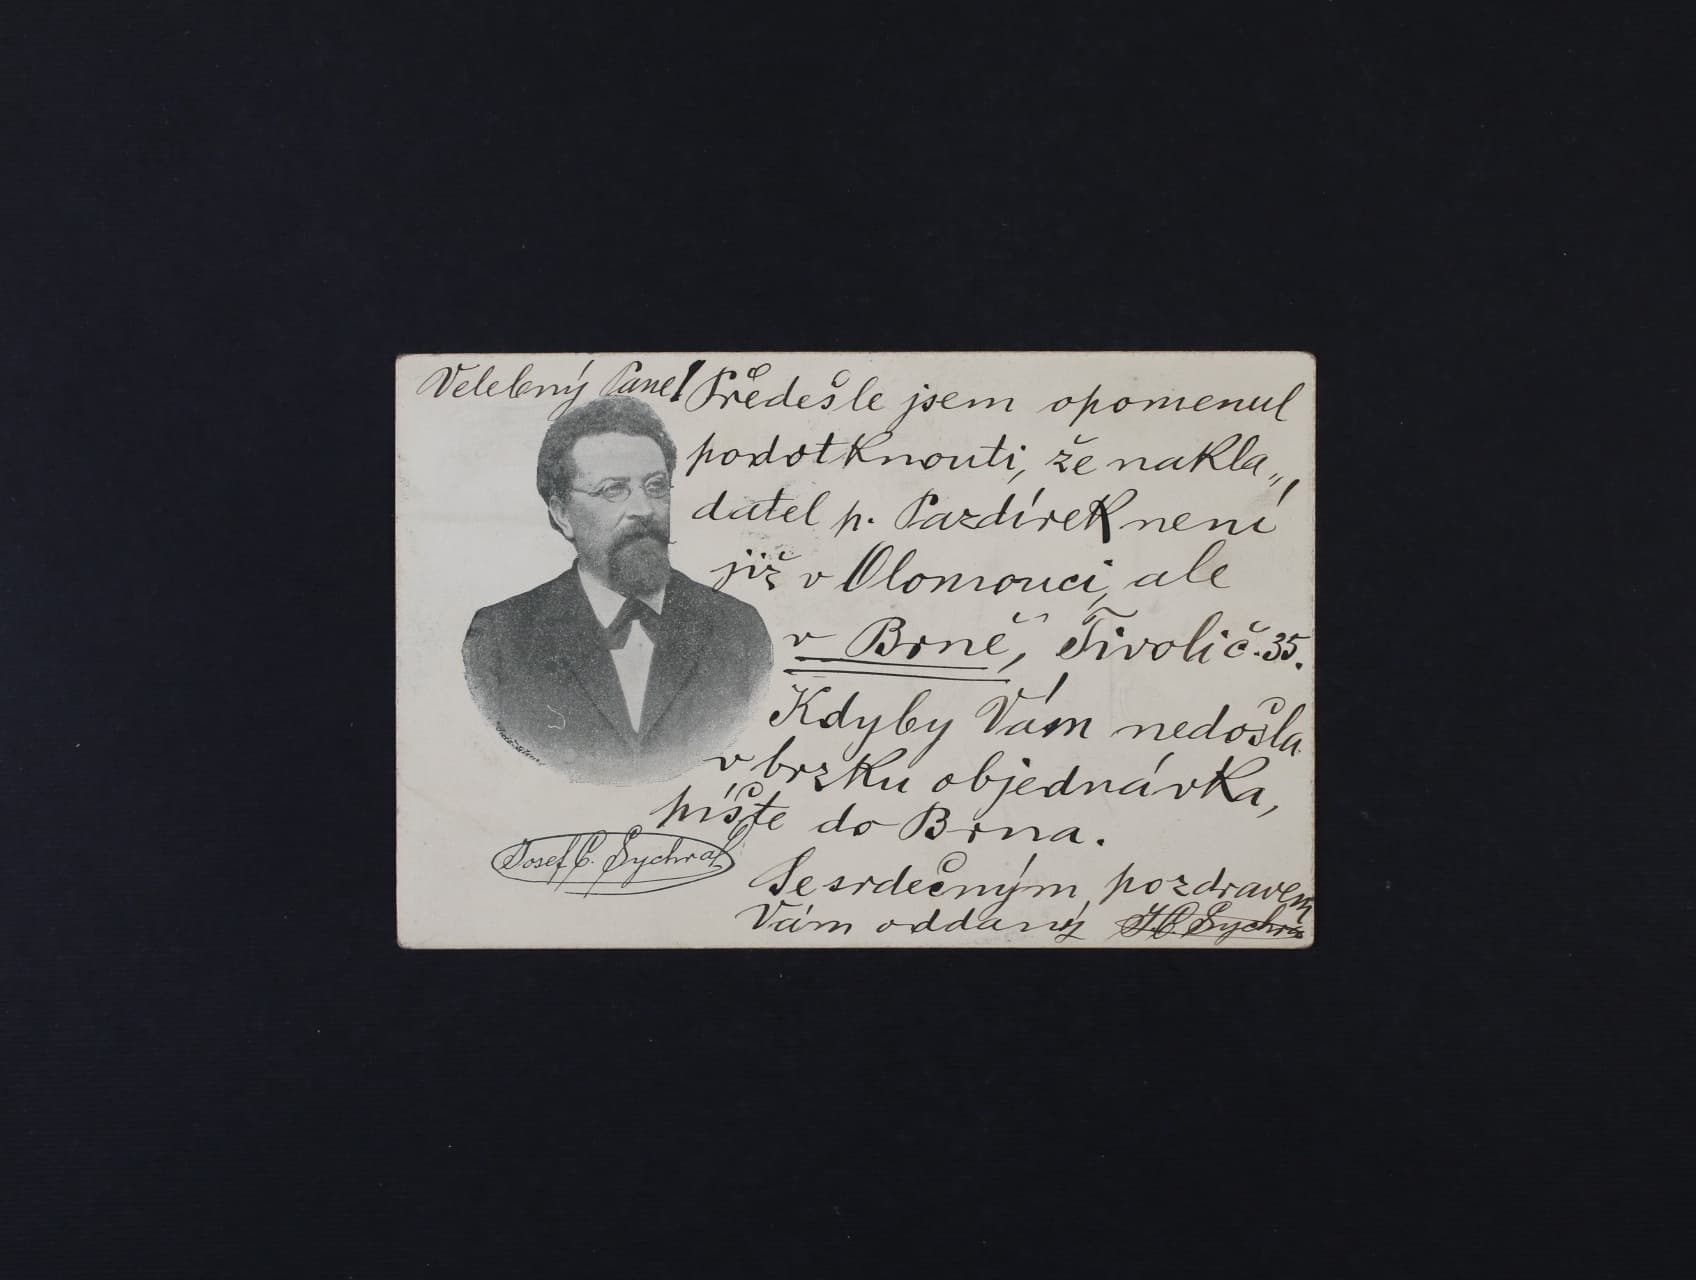 Velebný Pane!
Předešle jsem opomenul
podotknouti, že nakla„
datel p. Pazdírek není
již v Olomouci, ale
v Brně, Tivoli č. 35.
Kdyby Vám nedošla
v brzku objednávka,
pište do Brna.
Se srdečným pozdravem
Vám oddaný J. C. Sychra
Josef C. Sychra